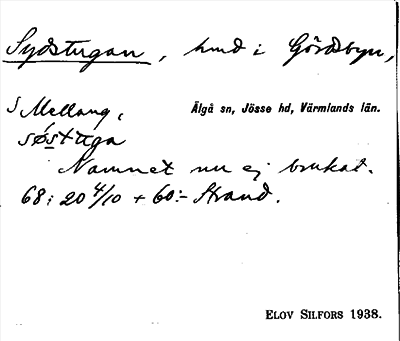 Sydstugan, hmd i Gördsbyn,
S Mellang, Älgå sn, Jösse hd, Värmlands län.
søstuga
Namnet nu ej brukat.
68; 20 4/10 + 60:- Strand.
ELOV SILFORS 1938.